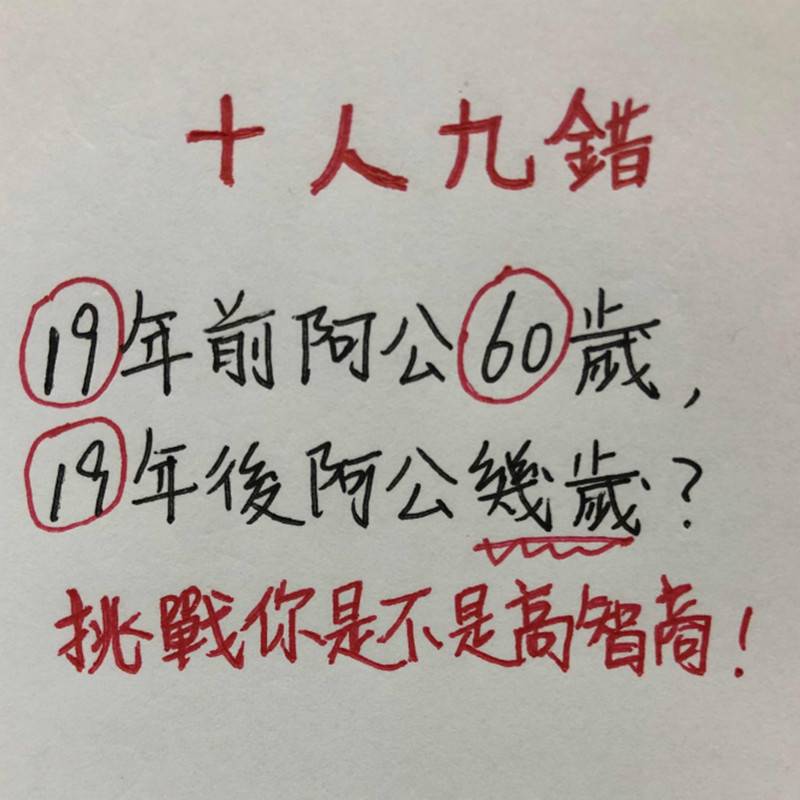 十人九錯
19年前阿公60歲，
19年後阿公幾歲？
挑戰你是不是高智商！